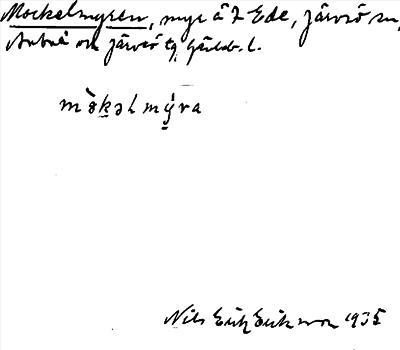 Mockelmyren, myr å 2 Ede, Järvsö sn,
Arbrå och Järvsö tg. Gävleb. l.
mò̀kəlmýra
Nils Erik Eriksson 1935